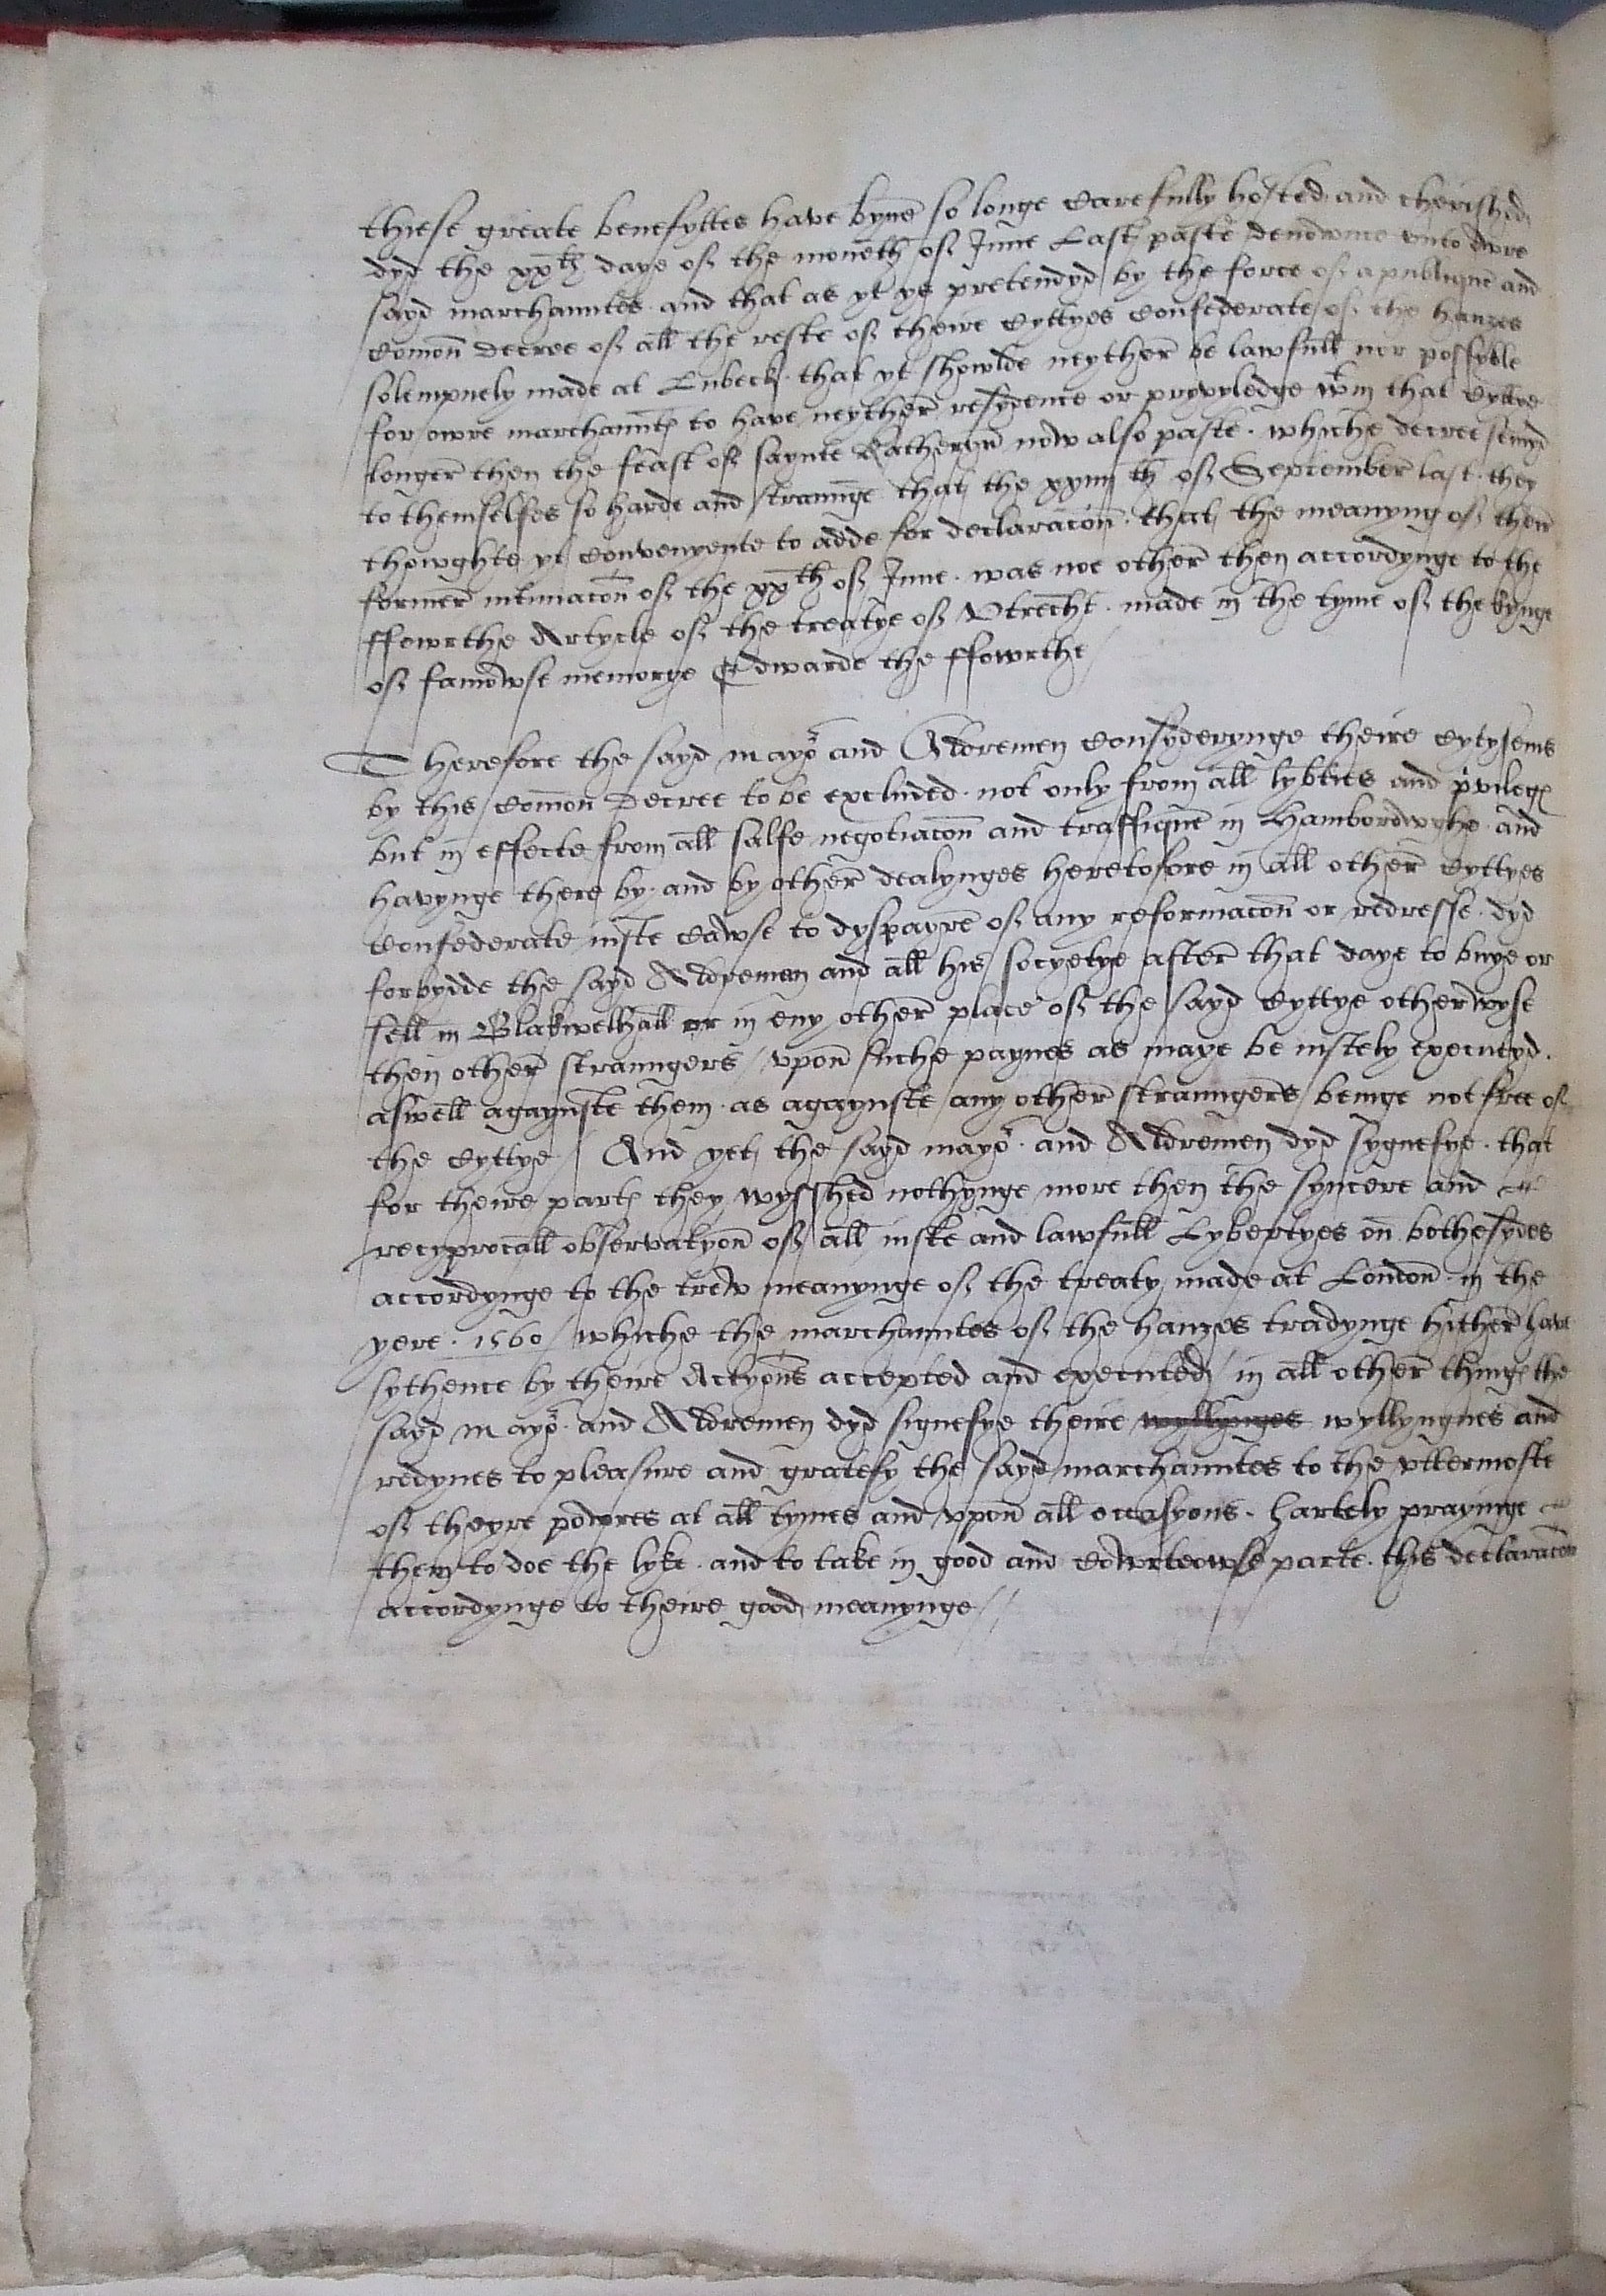 thiese greate benefyttes have byne so longe carefully hosted and cherished
dyd the xxth daye of the moneth of June Last paste denownce unto owre
sayd marchauntes and that as yt ys pretendyd by the force of a publique and
comon decree of all the reste of theire cyttyes confederate of the hanzes
solempnely made at Lubeck. that yt showlde neyther be lawfull nor possyble
for owre marchaunt to have neyther resydence or pryvyledge wtin that cyttye
longer then the feast of saynte Katheryn now also paste. whiche decree semyd
to themselfes so harde and straunge that the xxiiijth of September last. they
thowghte yt convenyente to adde for declaracon. that the meanyng of their
former intimacon of the xxth of June. was noe other then accordynge to the
ffowrthe Artycle of the treatye of Utrecht. made in the tyme of the kynge
of famowse memorye Edwarde the ffowrthe /
Therefore the sayd mayor and Aldremen consyderynge theire cytysens
by this comon decree to be excluded. not only from all lybties and privileg
but in effecte from all salfe negotiacon and traffique in Hambordwghe. and
havynge there by. and by other dealynges heretofore in all other cyttyes
confederate iuste cawse to dyspayre of any reformacon or redresse. dyd
forbydde the sayd Aldreman and all his socyetye after that daye to buye or
sell in Blakwelhall or in eny other place of the sayd cyttye otherwyse
then other straungers / vpon suche paynes as maye be iustely executyd.
aswell agaynste them. as agaynste any other straungers beinge not free of
the cyttye / And yet the sayd mayor. and Aldremen dyd sygnefye. that
for theire part they wysshed nothynge more then the syncere and
recyprocall observatyon of all iuste and lawfull Lybertyes on bothe sydes
accordynge to the trew meanynge of the treaty made at London in the
yere. 1560 / whiche the marchauntes of the hanzes tradynge hither have
sythence by theire Actyons accepted and executed / in all other thinges the
sayd mayor. and Aldremen dyd signefye theire wyllynges wyllyngnes and
redynes to pleasure and gratefy the sayd marchauntes to the vttermoste
of theyre powres at all tymes and vpon all occasyons. hartely prayinge
them to doe the lyke. and to take in good and cowrteowse parte. this declaracon
accordynge to theire good meanynge //